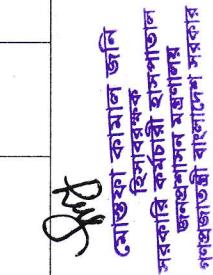 মোস্তফা কামাল জনি
হিসাবরক্ষক
সরকারি কর্মচারী হাসপাতাল
জনপ্রশাসন মন্ত্রণালয়
গণপ্রজাতন্ত্রী বাংলাদেশ সরকার